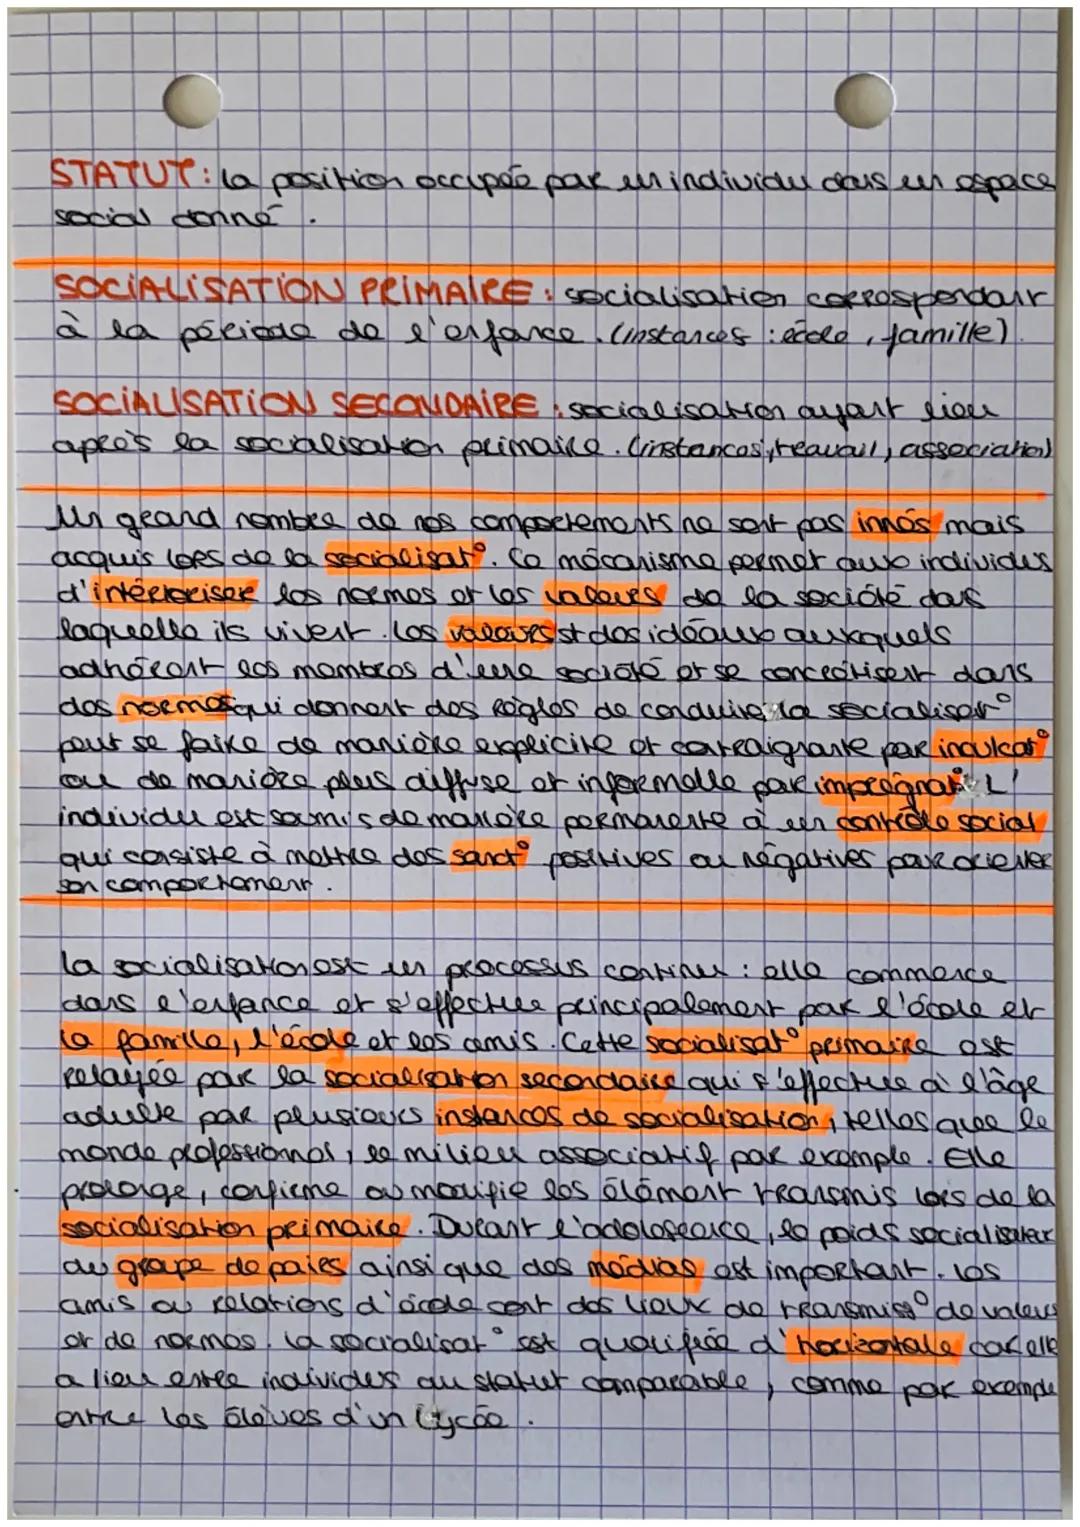 STATUT : la position occupée par un individu dans un espace
social donné .
SOCIALISATION PRIMAIRE : socialisation correspondant
à la période de l'enfance . (instances : école , famille) .
SOCIALISATION SECONDAIRE : socialisation ayant lieu
après la socialisation primaire . (instances : travail , association)
Un grand nombre de nos comportements ne sont pas innés mais
acquis lors de la socialisat° . Ce mécanisme permet aux individus
d'intérioriser les normes et les valeurs de la société dans
laquelle ils vivent . Les valeurs st des idéaux auxquels
adhérent les membres d'une société et se concrétisent dans
des normes qui donnent des règles de conduire la socialisat°
peut se faire de manière explicite et contraignante par inculcat°
ou de manière plus diffuse et informelle par imprégnat° L'
individu est soumis de manière permanente à un contrôle social
qui consiste à mettre des sanct° positives ou négatives pour orienter
son comportement .
La socialisation est un processus continu : elle commence
dans l'enfance et s'effectue principalement par l'école et
la famille, l'école et les amis . Cette socialisat° primaire est
relayée par la socialisation secondaire qui s'effectue à l'âge
adulte par plusieurs instances de socialisation , telles que le
monde professionnel , le milieu associatif par exemple . Elle
prolonge , confirme ou modifie les élément transmis lors de la
socialisation primaire . Durant l'adolescence , le poids socialisateur
du groupe de paires ainsi que des médias est important . Les
amis ou relations d'école sont des lieux de transmiss° de valeurs
et de normes . La socialisat° est qualifiée d'horizontale car elle
a lieu entre individus au statut comparable , comme par exemple
entre les élèves d'un lycée .